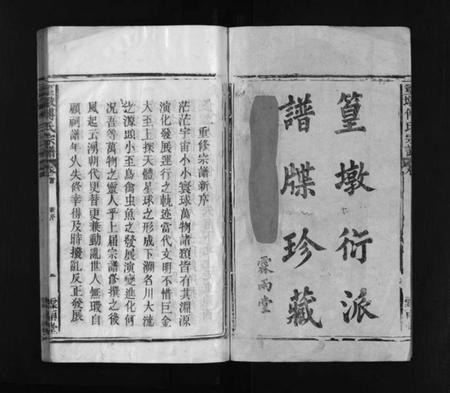 篁墩衍派
譜牒珍藏
霖雨堂
重修宗譜新序
茫茫宇宙小小寰球萬物諸類皆有其淵源
演化發展運行之軌迹當代文明不惜巨金
大至上探天體星球之形成下溯名川大流
之源頭小至鳥禽虫魚之發展演變進化何
况吾等萬物之靈人乎上屆宗譜修撰之後
風起云湧朝代更替更兼動亂世人無瑕自
顧祠譜年久失修幸得及時撥亂反正發展